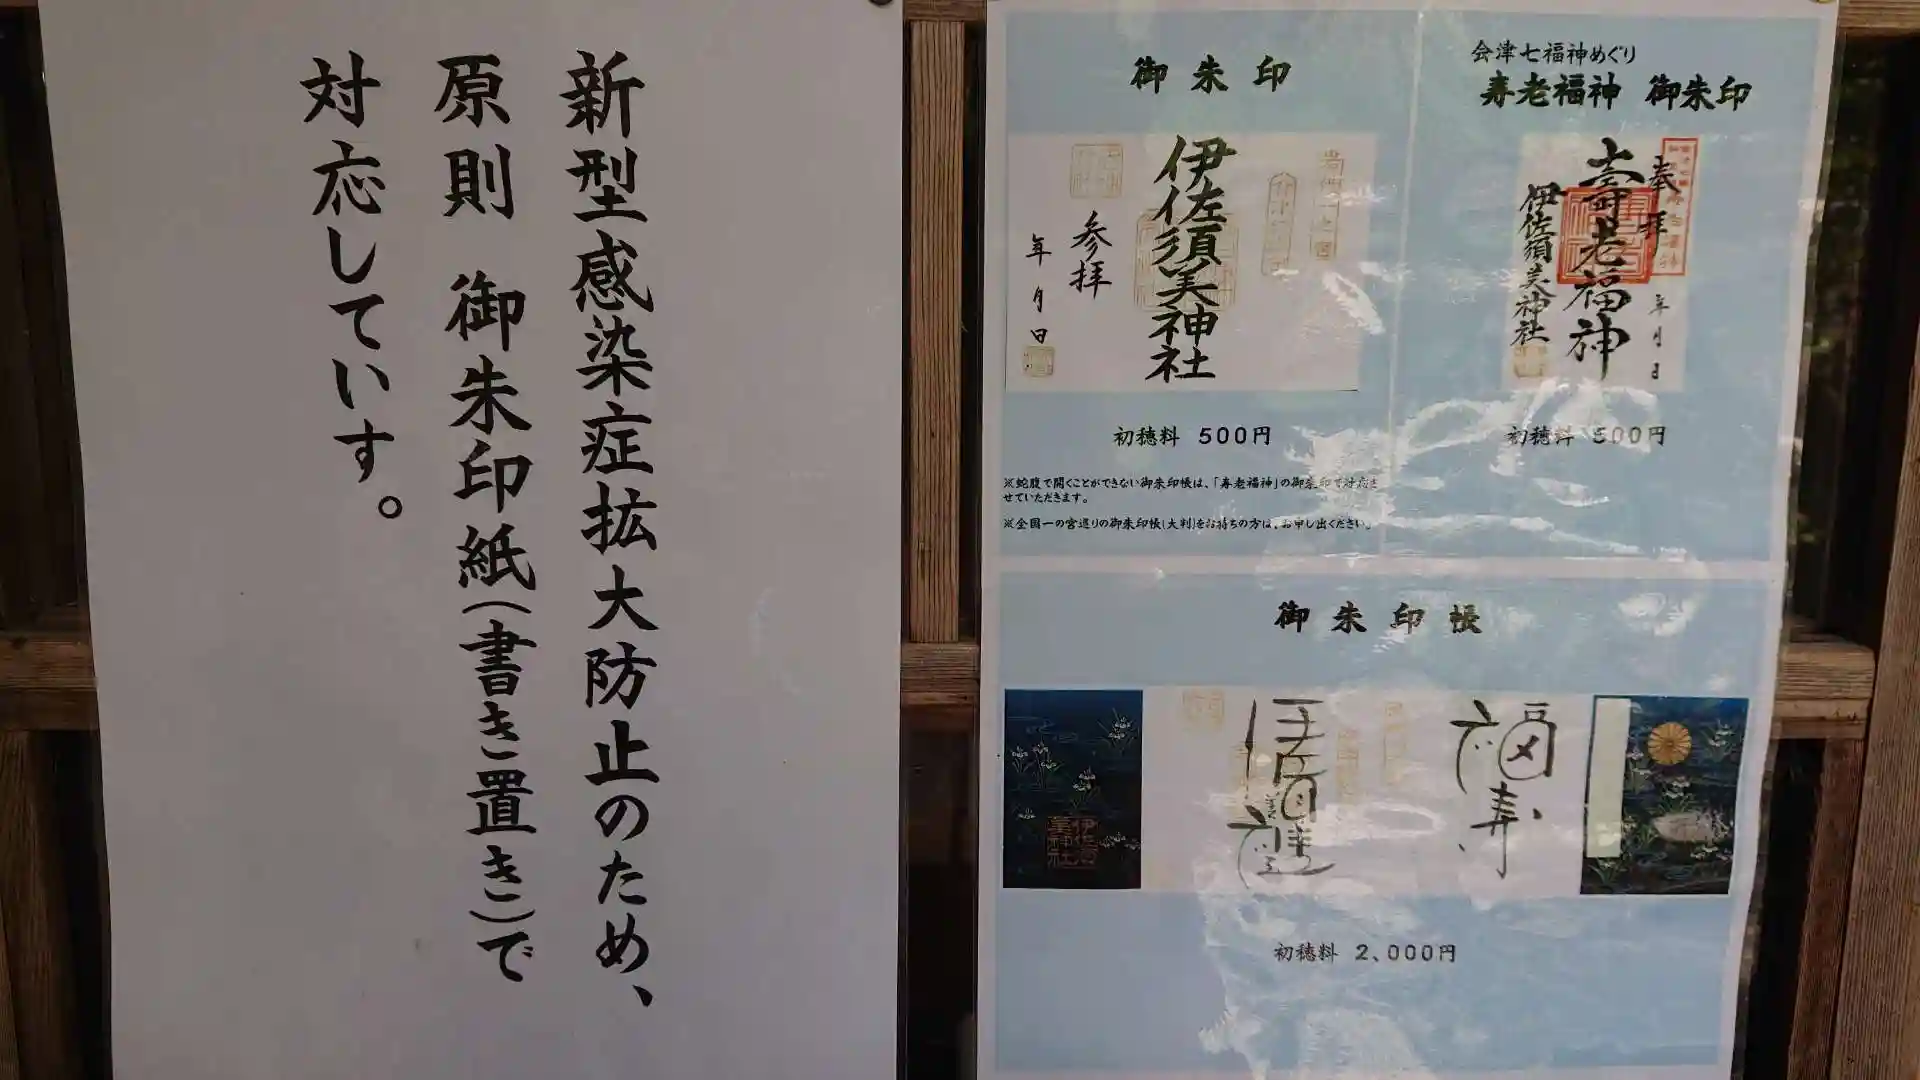 新型感染症拡大防止のため、
原則 御朱印紙(書き置き)で
対応しています。
御朱印
伊佐須美神社
参拝
年 月 日
初穂料 500円
※蛇腹で開くことができない御朱印帳は、「寿老福神」の御朱印で対応さ
せていただきます。
※全国一の宮巡りの御朱印帳(大判)をお持ちの方は、お申し出ください。
会津七福神めぐり
寿老福神 御朱印
奉拝
壽老福神
伊佐須美神社
年 月 日
初穂料 500円
御朱印帳
福寿
伊佐須美神社
初穂料 2,000円